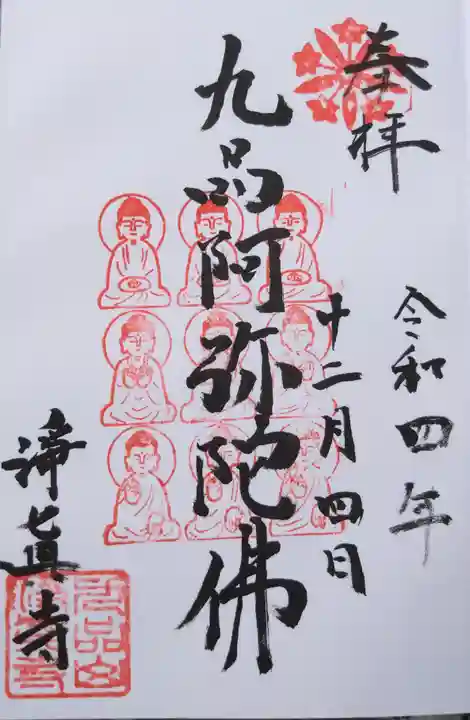 奉拝
令和四年
十二月四日
九品阿弥陀佛
淨眞寺